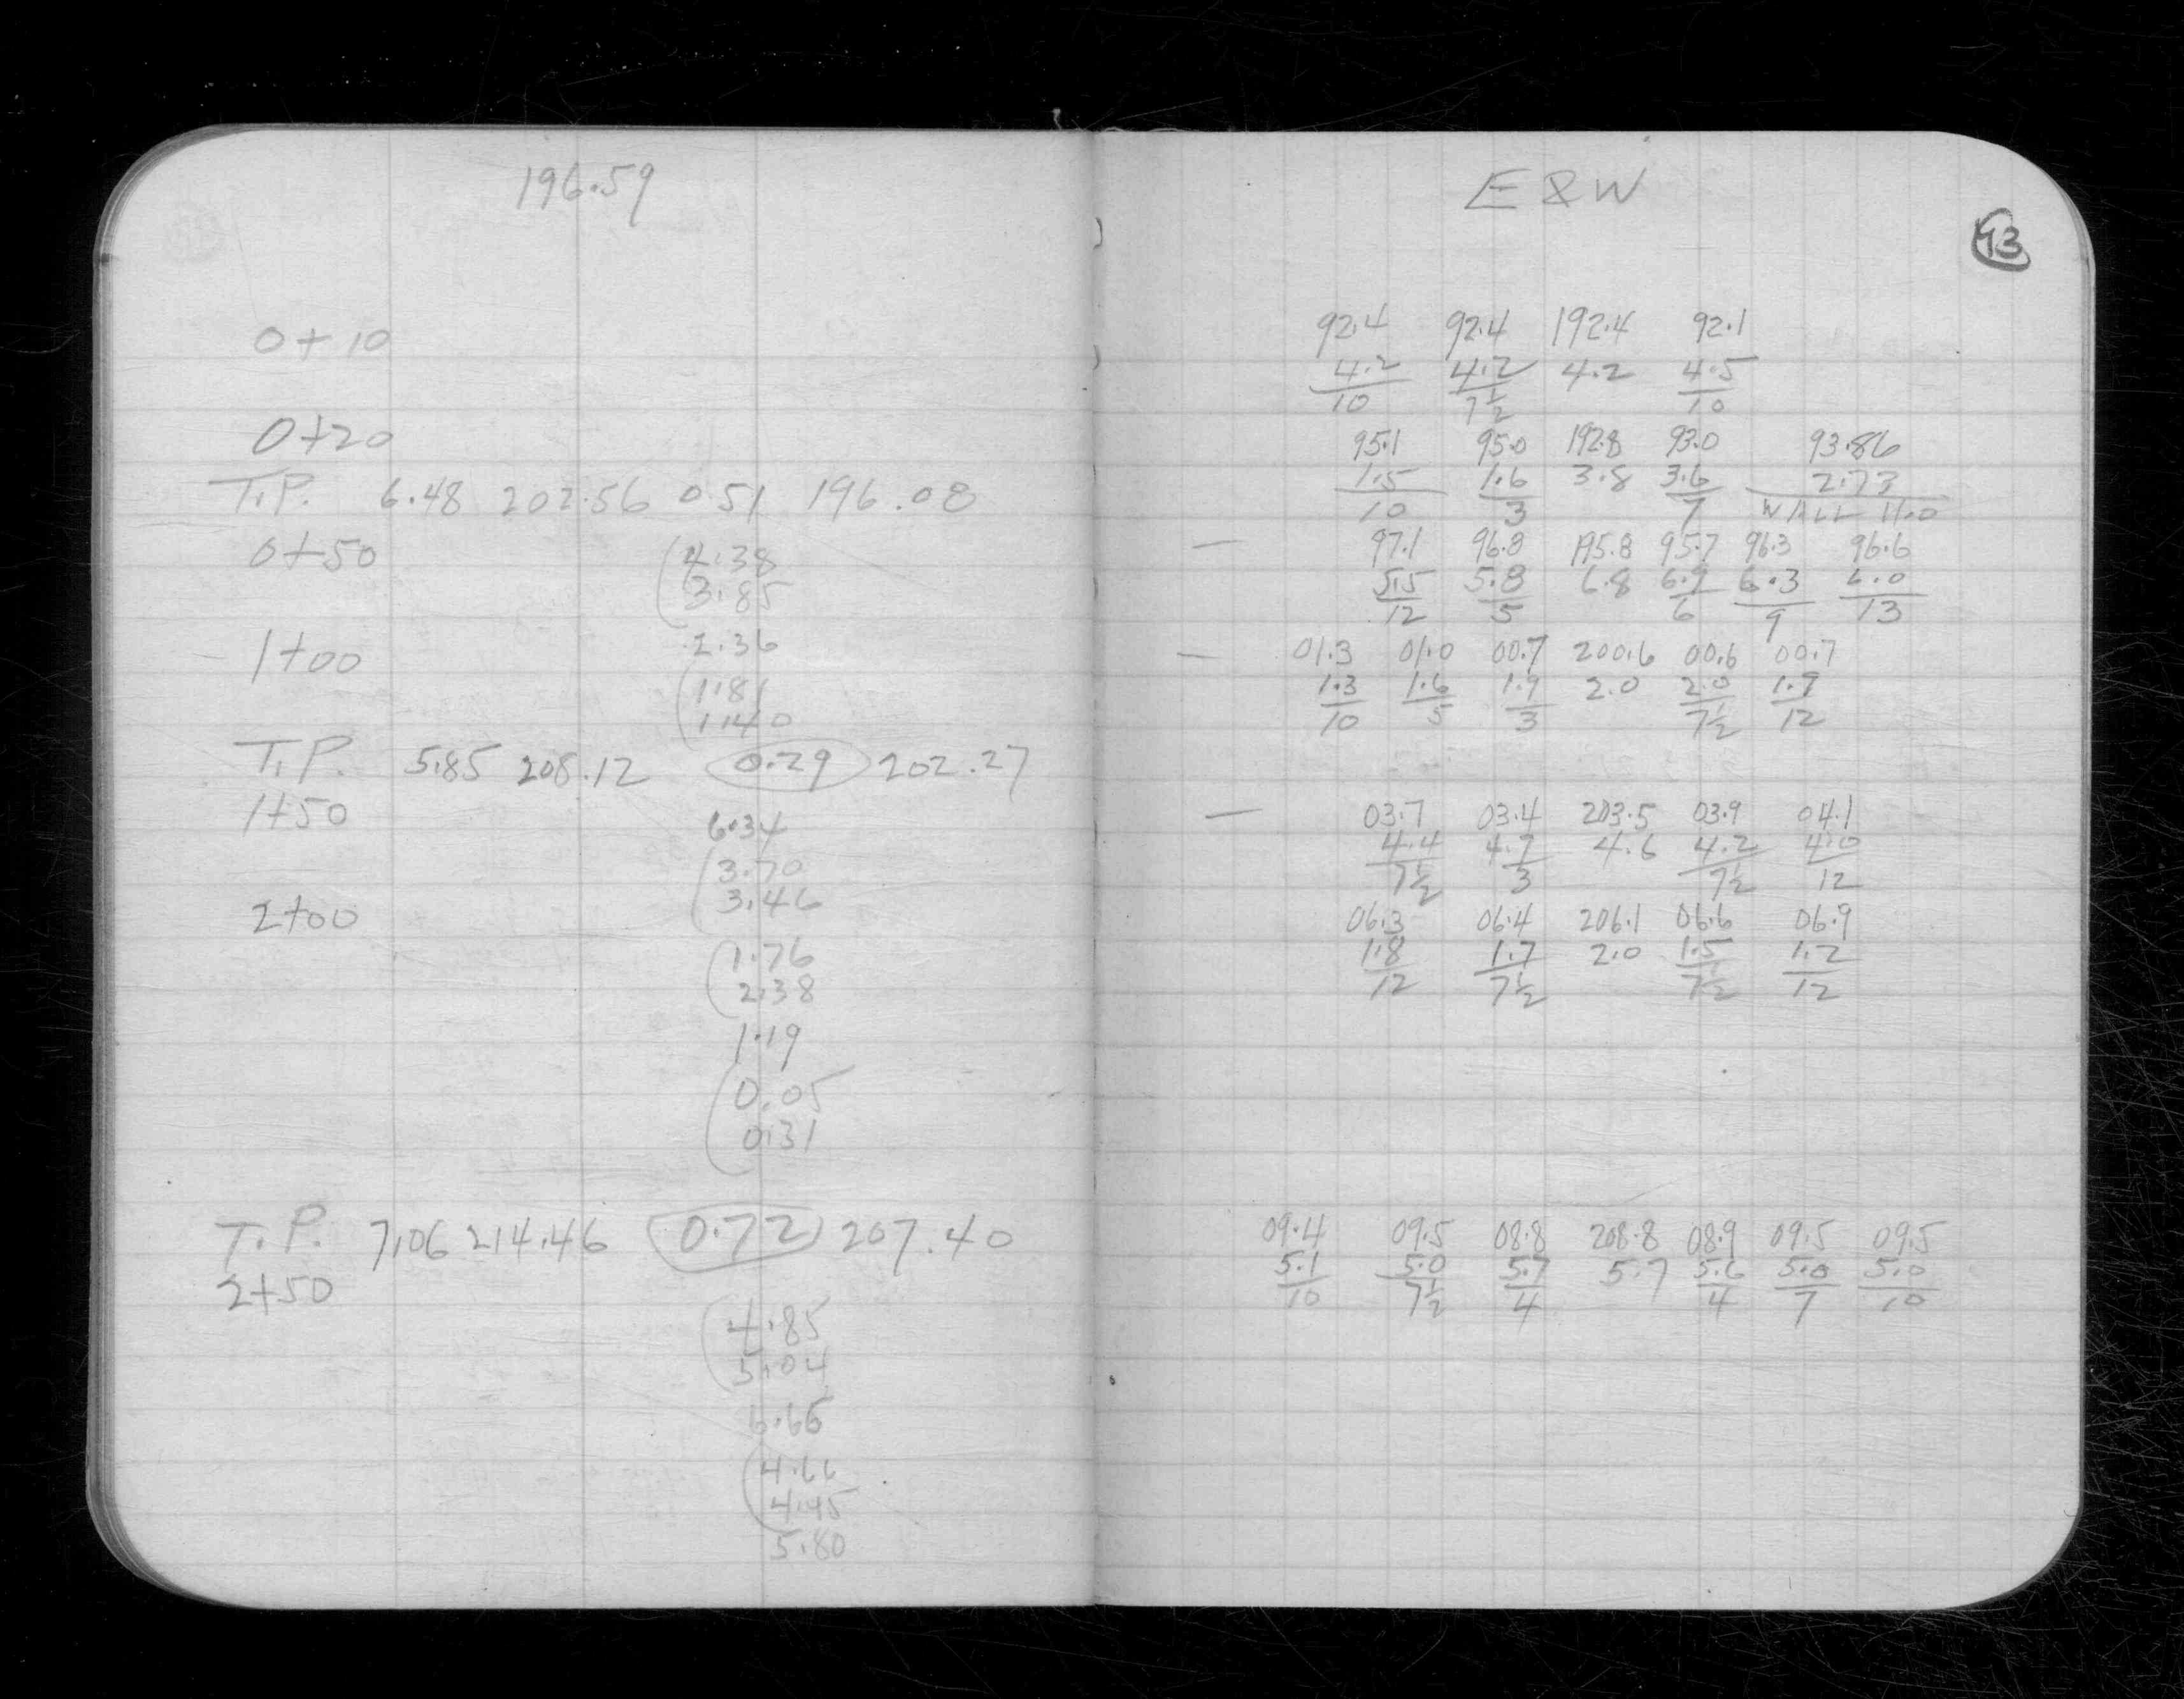 196.59
0+10
0+20
T.P. 6.48 202.56 0.51 196.08
0+50
4.38
3.85
1+00
2.36
1.81
1.40
T.P. 5.85 208.12 0.29 202.27
1+50
6.34
3.70
3.46
2+00
1.76
2.38
1.19
0.05
0.31
T.P. 7.06 214.46 0.72 207.40
2+50
4.85
5.04
6.65
4.66
4.45
5.80
E & W
13
92.4 92.4 192.4 92.1
4.2 4.2 4.2 4.5
10 7½ 10
95.1 95.0 192.8 93.0 93.86
1.5 1.6 3.8 3.6 2.73
10 3 7 WALL 11.0
— 97.1 96.8 195.8 95.7 96.3 96.6
5.5 5.8 6.8 6.9 6.3 6.0
12 5 6 9 13
— 01.3 01.0 00.7 200.6 00.6 00.7
1.3 1.6 1.9 2.0 2.0 1.9
10 5 3 7½ 12
— 03.7 03.4 203.5 03.9 04.1
4.4 4.7 4.6 4.2 4.0
7½ 3 7½ 12
06.3 06.4 206.1 06.6 06.9
1.8 1.7 2.0 1.5 1.2
12 7½ 7½ 12
09.4 09.5 08.8 208.8 08.9 09.5 09.5
5.1 5.0 5.7 5.7 5.6 5.0 5.0
10 7½ 4 4 7 10